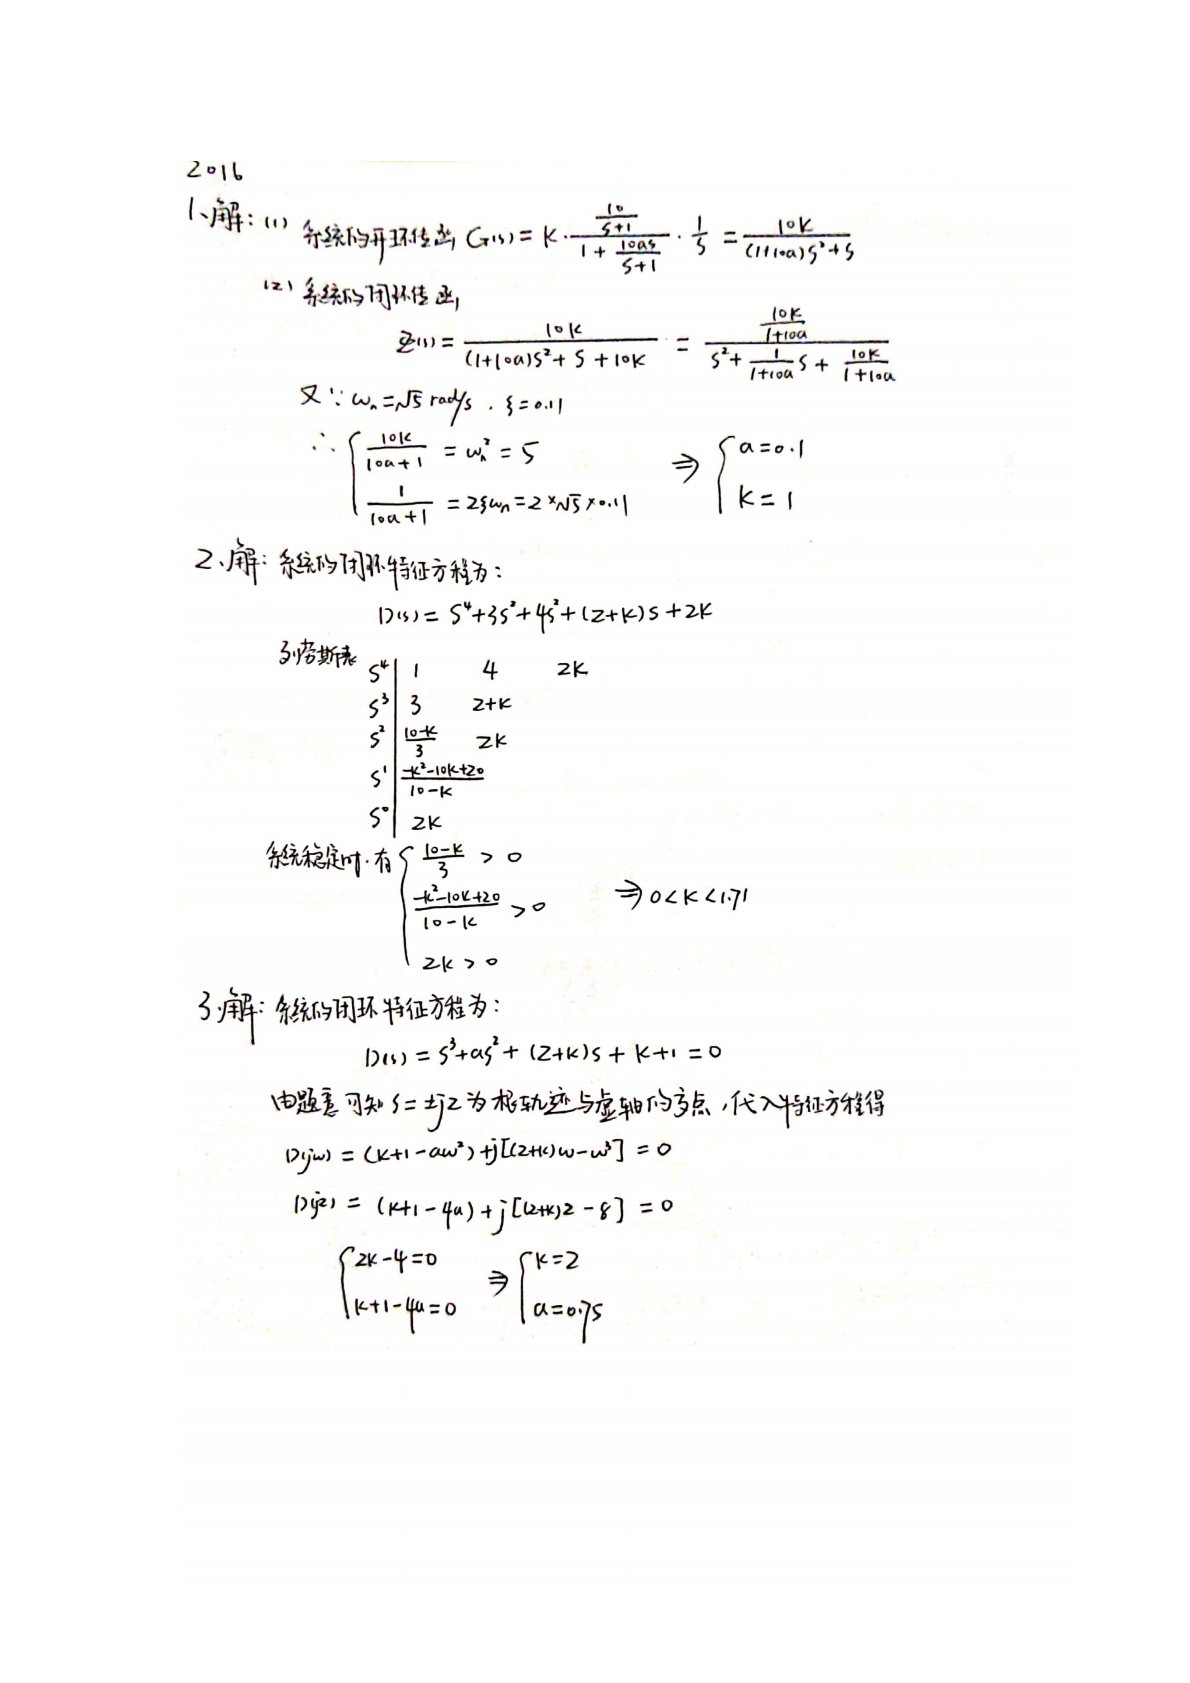 2016
1、解：(1) 系统的开环传函 G(s) = K · \frac{\frac{10}{s+1}}{1+\frac{10as}{s+1}} · \frac{1}{s} = \frac{10K}{(1+10a)s²+s}
(2) 系统的闭环传函,
Φ(s) = \frac{10K}{(1+10a)s²+s+10K} = \frac{\frac{10K}{1+10a}}{s²+\frac{1}{1+10a}s+\frac{10K}{1+10a}}
又∵ ωₙ=√5 rad/s . ξ=0.11
∴ { \frac{10K}{10a+1} = ωₙ² = 5 ⇒ { a=0.1
\frac{1}{10a+1} = 2ξωₙ = 2×√5×0.11 K=1
2、解：系统的闭环特征方程为：
D(s) = s⁴+3s²+4s²+(2+K)s+2K
列劳斯表
s⁴ | 1 4 2K
s³ | 3 2+K
s² | \frac{10-K}{3} 2K
s¹ | \frac{-K²-10K+20}{10-K}
s⁰ | 2K
系统稳定时．有 { \frac{10-K}{3} > 0
\frac{-K²-10K+20}{10-K} > 0 ⇒ 0<K<1.71
2K > 0
3、解：系统的闭环特征方程为：
D(s) = s³+as²+(2+K)s+K+1=0
由题意可知 s=±j2 为根轨迹与虚轴的交点，代入特征方程得
D(jω) = (K+1-aω²)+j[(2+K)ω-ω³] = 0
D(j2) = (K+1-4a)+j[(2+K)2-8] = 0
{ 2K-4=0 ⇒ { K=2
K+1-4a=0 a=0.75